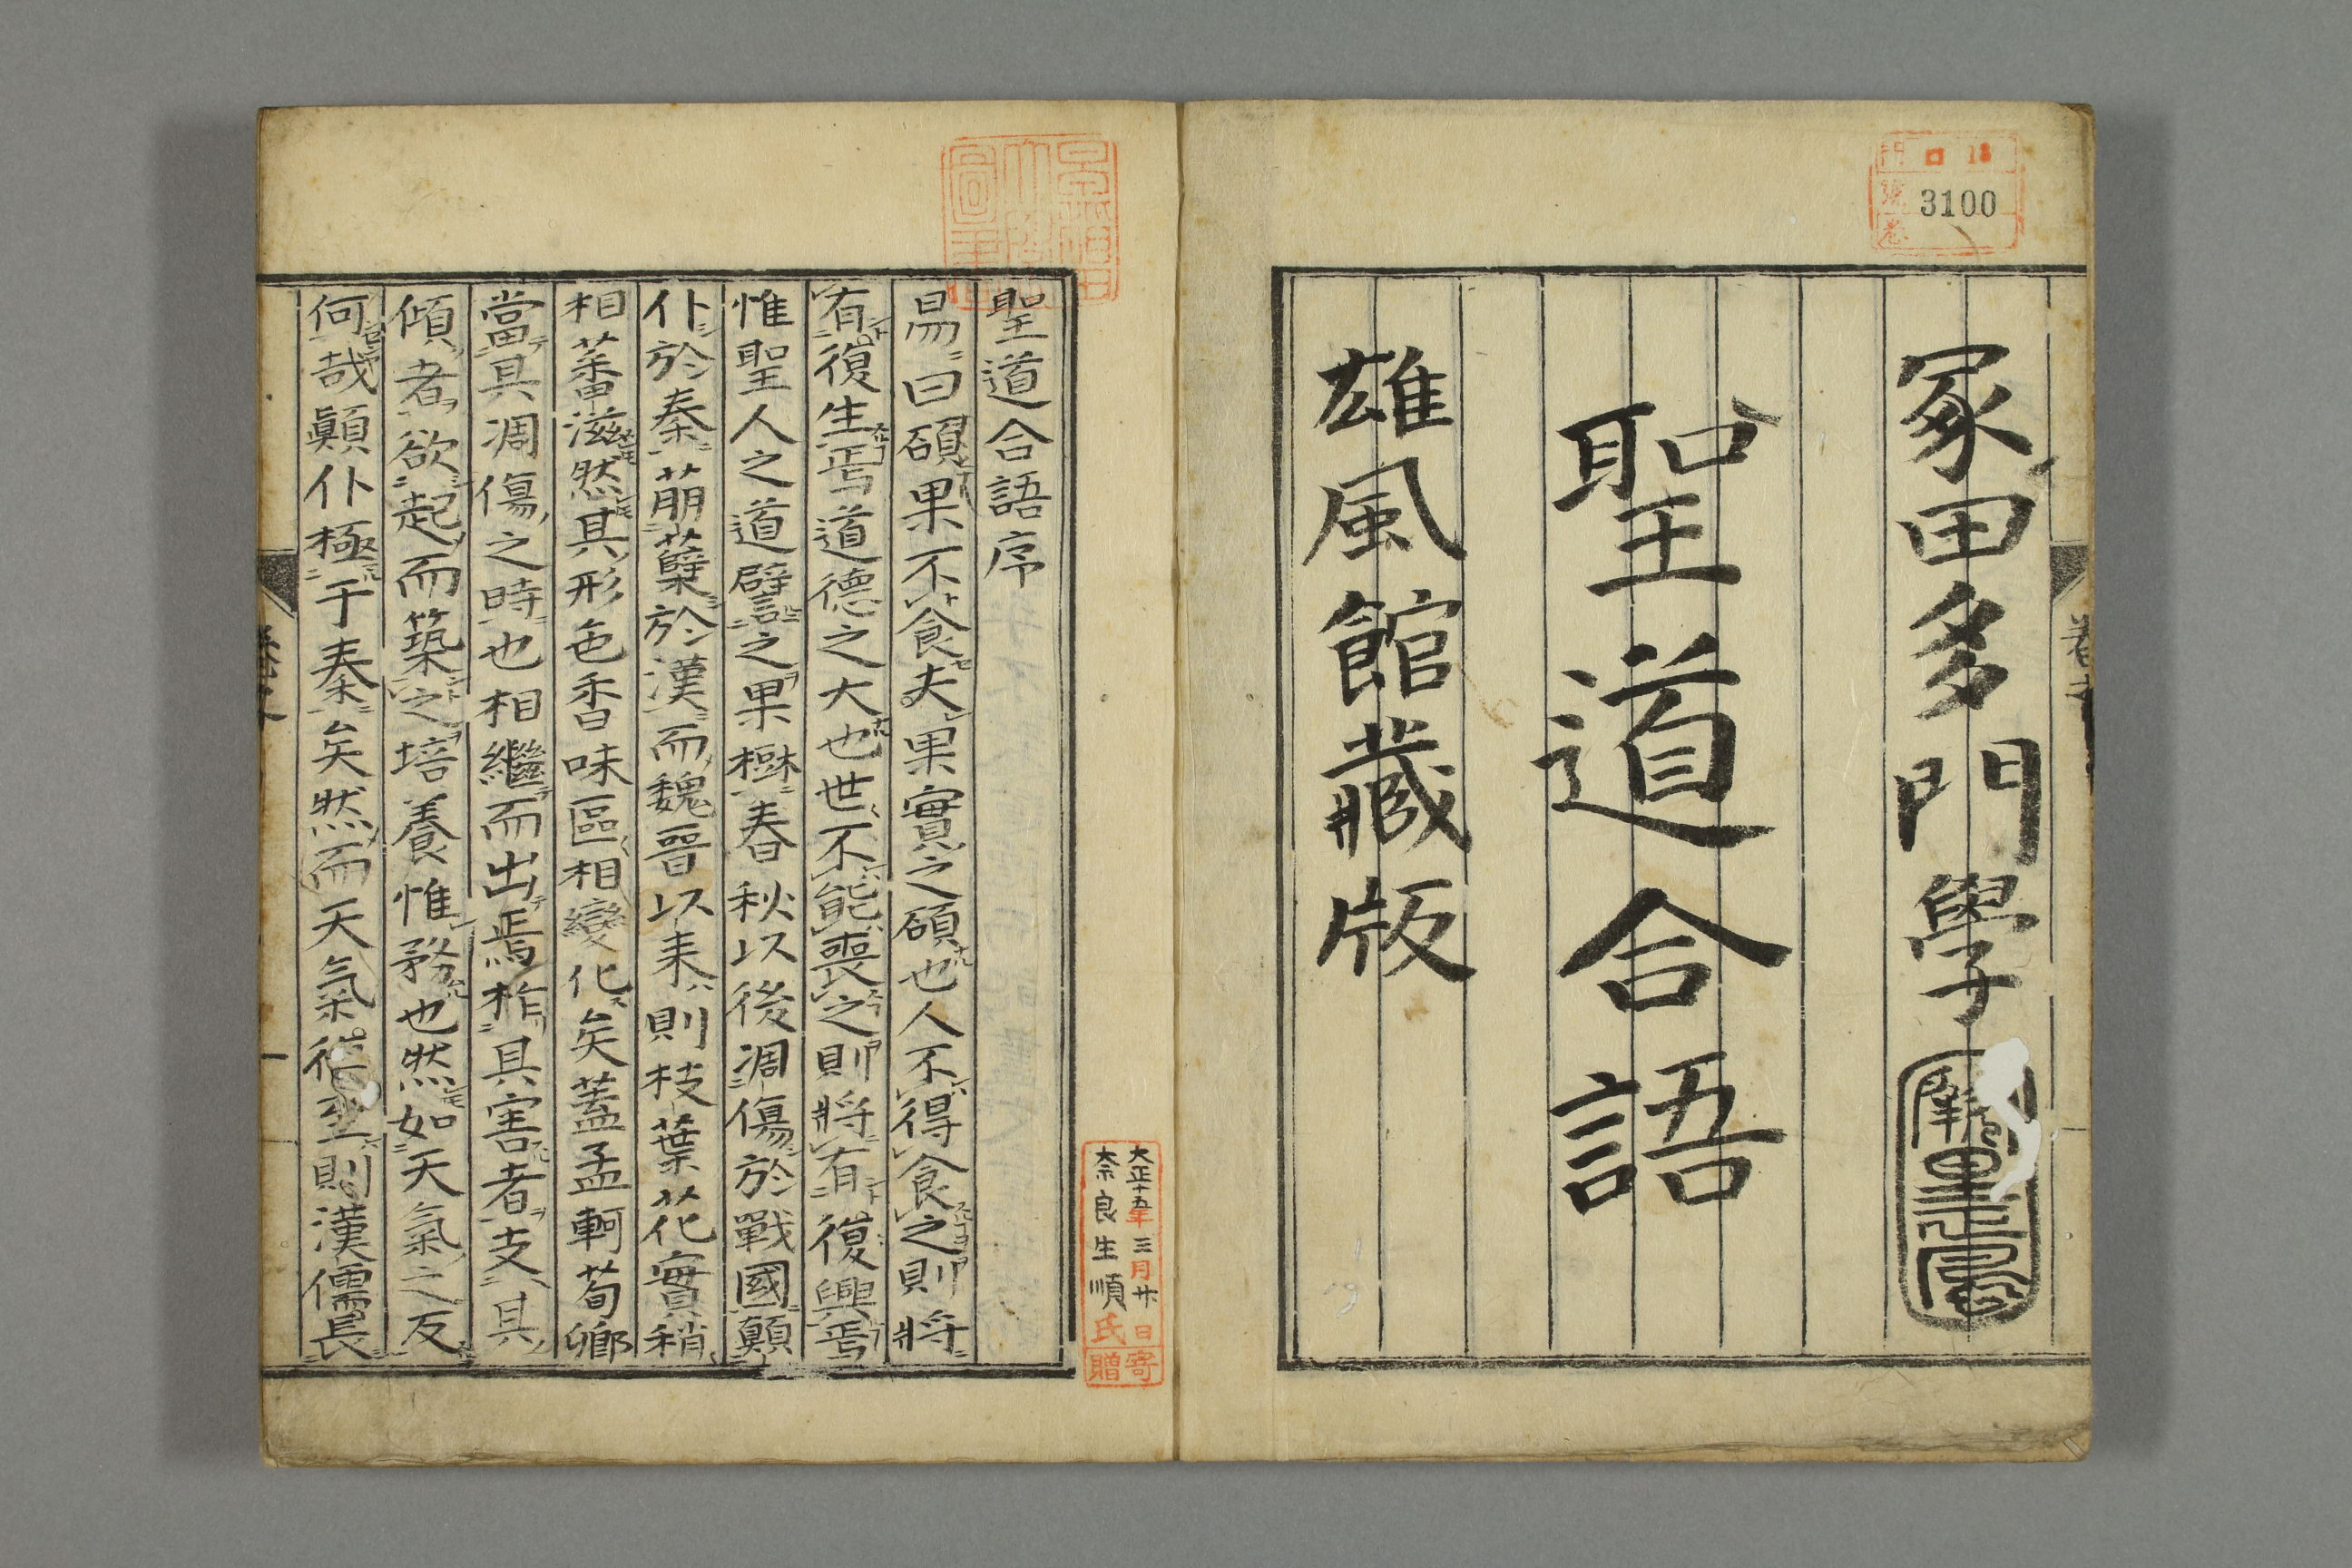 冢田多門學
聖道合語
雄風館藏版
門 口 13
號 3100
卷
聖道合語序
昜曰碩果不食夫果實之碩也人不得食之則將
有復生焉道德之大也世不能喪之則將有復興焉
惟聖人之道譬之果樹春秋以後凋傷於戰國顚
仆於秦萠蘖於漢而魏晉以来則枝葉花實稍
相蕃滋然其形色香味區相變化矣蓋孟軻荀卿
當其凋傷之時也相繼而出焉柞其害者支其
傾者欲起而築之培養惟務也然如天氣之反
何哉顚仆極于秦矣然而天氣循至則漢儒長
大正十五年三月廿日寄
奈良生順氏贈